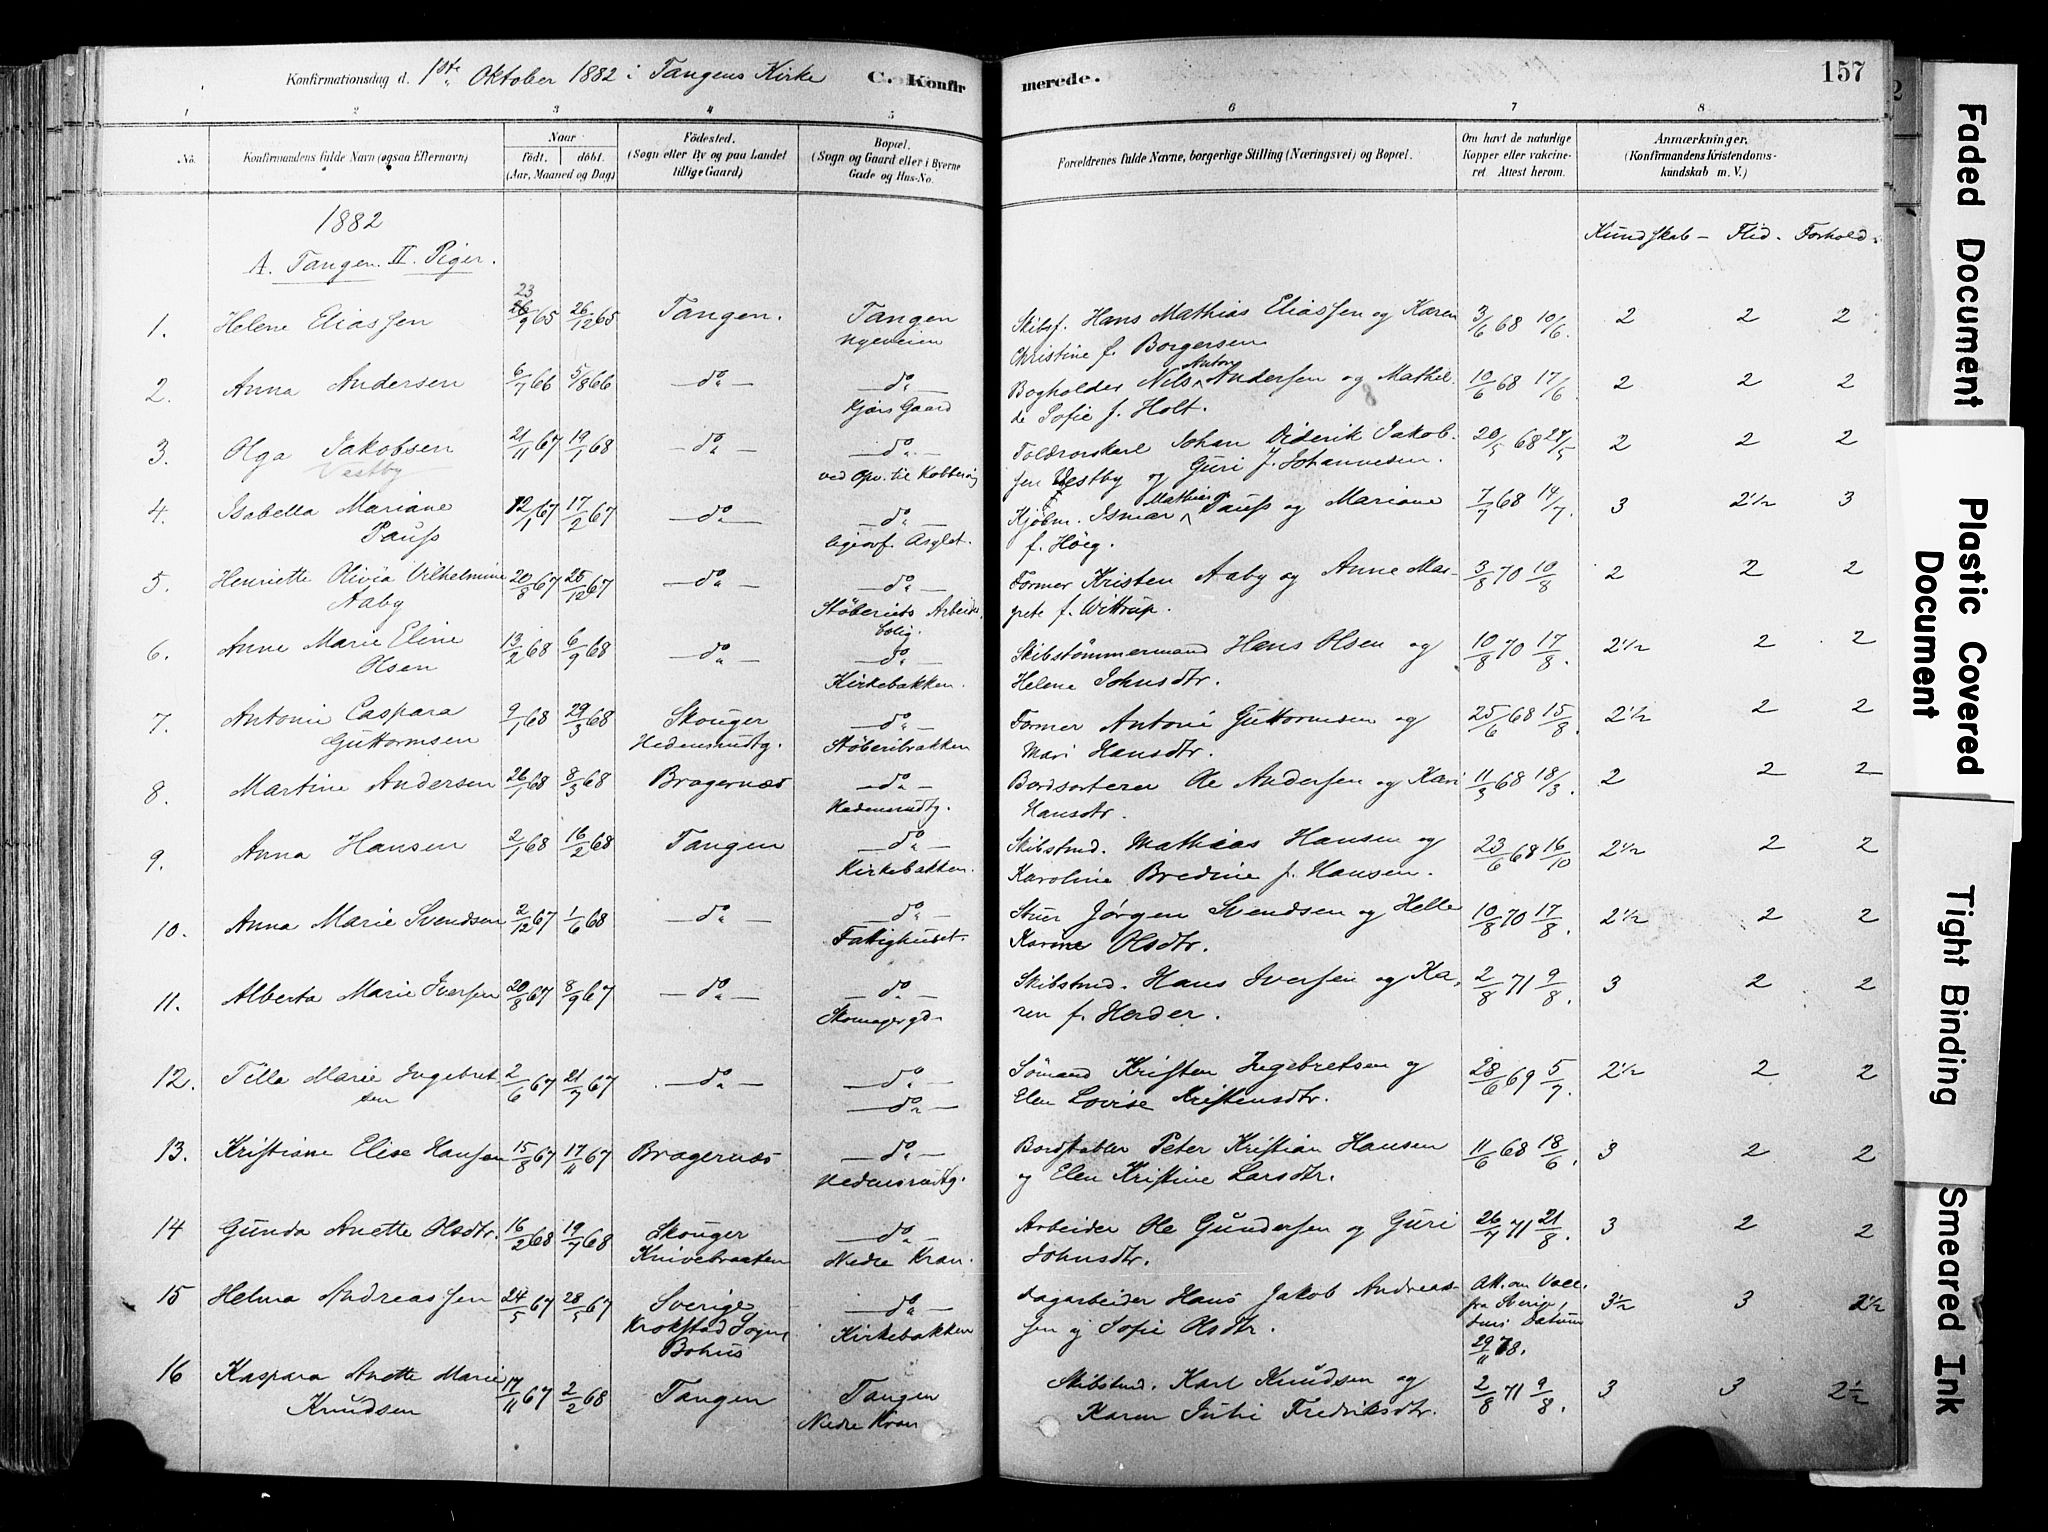 Konfirmationsdag d. 1ste Oktober 1882 i Tangens Kirke C. Konfirmerede. 157
1 2 3 4 5 6 7 8
No. Konfirmandens fulde Navn (ogsaa Efternavn) Naar født. døbt. (Aar, Maaned og Dag) Fødested. (Sogn eller By og paa Landet tillige Gaard) Bopæl. (Sogn og Gaard eller i Byerne Gade og Hus-No. Forældrenes fulde Navne, borgerlige Stilling (Næringsvei) og Bopæl. Om havt de naturlige Kopper eller vakcineret. Attest herom. Anmærkninger. (Konfirmandens Kristendomskundskab m. V.)
1882
A. Tangen. II. Piger.
Kundskab - Flid. Forhold.
1. Helene Eliassen 23/9 65 26/12 65 Tangen. Tangen Skibsf. Hans Mathias Eliassen og Karen 3/6 68 10/6. 2 2 2
Nyeveien Christine f. Borgersen
2. Anna Andersen 6/7 66 5/8 66 — do — — do — Bogholder Nils Anton Andersen og Mathil- 10/6 68 17/6 2 2 2
Kjærs Gaard de Sofie f. Holt.
3. Olga Jakobsen 21/11 67 19/1 68 — do — — do — Toldrorskarl Johan Diderik Jakob- 20/5 68 27/5 2 2 2
Vestby ved Opv. til Kobberv. sen Vestby og Guri f. Johannesen.
4. Isabella Mariane 12/1 67 17/2 67 — do — — do — Kjøbm. Ismar Mathias Pauss og Mariane 7/7 68 14/7. 3 2½ 3
Pauss ligeovf. Asylet. f. Höeg.
5. Henriette Olivia Vilhelmine 20/8 67 25/12 67 — do — — do — Former Kristen Aaby og Anne Mar- 3/8 70 10/8 2 2 2
Aaby Støberiets Arbeids- grete f. Wittrup.
bolig.
6. Anne Marie Eline 13/2 68 6/9 68 — do — — do — Skibstömmermand Hans Olsen og 10/8 70 17/8. 2½ 2 2
Olsen Kirkebakken. Helene Johnsdtr.
7. Antonie Caspara 9/1 68 29/3 68 Skouger — do — Former Antoni Guttormsen og 25/6 68 15/8. 2½ 2 2
Guttormsen Hedensrudtg. Støberibakken Mari Hansdtr.
8. Martine Andersen 26/1 68 8/3 68 Bragernæs — do — Bordsorterer Ole Andersen og Kari 11/3 68 18/3. 2 2 2
Hedensrudtg. Hansdtr.
9. Anna Hansen 2/1 68 16/2 68 Tangen — do — Skibstmd. Mathias Hansen og 23/6 68 16/10 2½ 2 2
Kirkebakken. Karoline Bredine f. Hansen.
10. Anna Marie Svendsen 2/12 67 1/6 68 — do — — do — Stuer Jørgen Svendsen og Helle 10/8 70 17/8. 2½ 2 2
Fattighuset. Karine Olsdtr.
11. Alberta Marie Iversen 20/8 67 8/9 67 — do — — do — Skibstmd. Hans Iversen og Ka- 2/8 71 9/8. 3 2 2
Skomagergd. ren f. Herder.
12. Tilla Marie Ingebret 2/6 67 21/7 67 — do — — do — Sömand Kristen Ingebretsen og 28/6 69 5/7. 2½ 2 2
sen — do — Elen Lovise Kristensdtr.
13. Kristiane Elise Hansen 15/8 67 17/11 67 Bragernæs — do — Bordstabler Peter Kristian Hansen 11/6 68 18/6. 3 2 2
Hedensrudtg. og Elen Kristine Larsdtr.
14 Gunda Anette Olsdtr. 16/2 68 19/7 68 Skouger — do — Arbeider Ole Gundersen og Guri 26/7 71 21/8. 3 2 2
Knivebraaten Nedre Kran. Johnsdtr.
15 Helma Andreassen 24/5 67 28/5 67 Sverige — do — Dagarbeider Hans Jakob Andreas- Att. om Vacc. 3½ 3 2½
Krokstad Sogn Kirkebakken sen og Sofie Olsdtr. fra Sverige,
Bohus Datum
29/11 78.
16 Kaspara Anette Marie 17/11 67 2/2 68 Tangen Tangen Skibstmd. Karl Knudsen og 2/8 71 9/8. 3 3 2½
Knudsen Nedre Kran Karen Julie Fredriksdtr.
2
Faded Document
Plastic Covered Document
Tight Binding
Smeared Ink